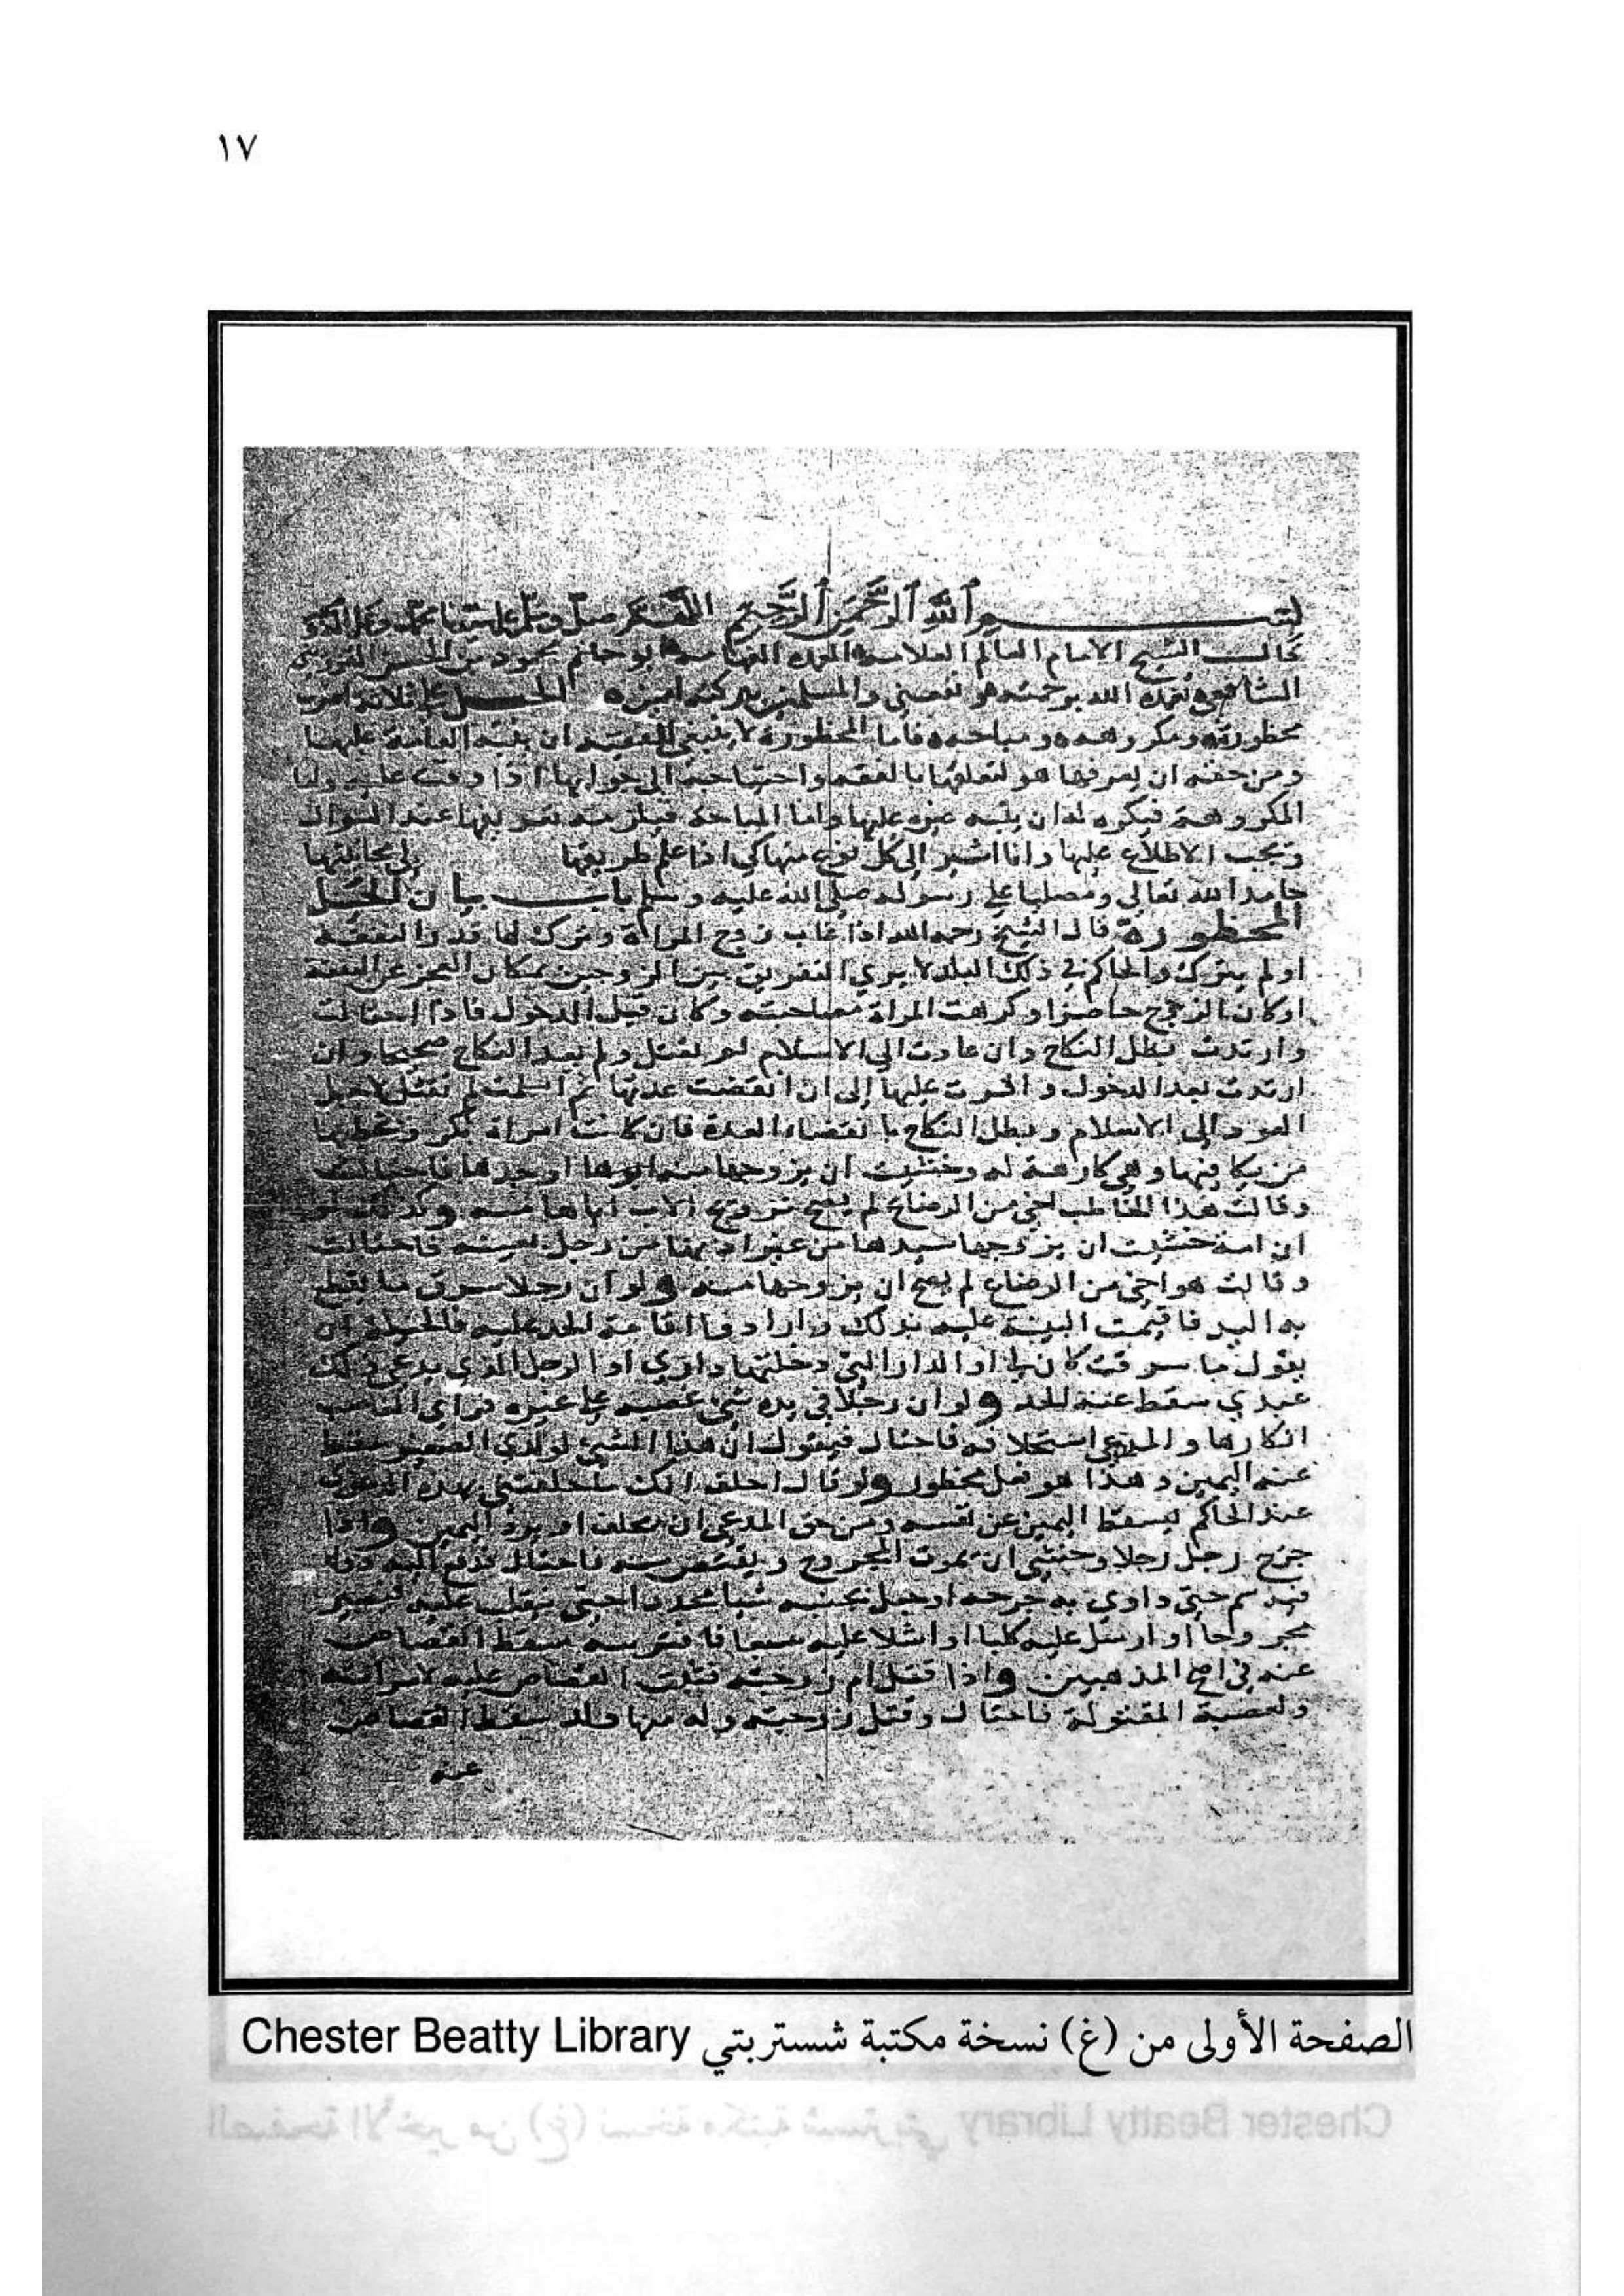 ١٧
بسم الله الرحمن الرحيم اللهم صل وسلم على سيدنا محمد وعلى آله
قال الشيخ الامام العالم العلامه ابو حاتم محمود بن الحسن القزويني
الشافعي تغمده الله برحمته ونفعني والمسلمين ببركته امين الحيل على ثلاثة اضرب
محظورة ومكروهه ومباحه فاما المحظورة لا ينبغي للفقيه ان ينبه العامة عليها
ومن حقه ان يعرفها هو لتعلقها بالفقه واحتياجه الى جوابها اذا وقعت عليه واما
المكروهة فيكره له ان ينبه غيره عليها واما المباحة فيلزمه تعريفها عند السوال
ويجب الاطلاع عليها وانا اشير الى كل نوع منها كي اذا علم طريقها
حامدا لله تعالى ومصليا على رسوله صلى الله عليه وسلم باب بيان الحيل
المحظورة قال الشيخ رحمه الله اذا غاب زوج المراة وترك لها قدر النفقة
او لم يترك والحاكم في ذلك البلد لا يري التفريق بين الزوجين بمكان العجز عن النفقة
او كان الزوج حاضرا وكرهت المراة مصاحبته وكان قبل الدخول فاذا احتالت
وارتدت بطل النكاح وان عادت الي الاسلام لم تقتل ولم يعد النكاح صحيحا وان
ارتدت بعد الدخول واصرت عليها الى ان انقضت عدتها ثم اسلمت لم تقتل لاجل
العود الى الاسلام وبطل النكاح بانقضاء العدة فان كانت امراة بكر وخطبها
من يكافيها وهي كارهة له وخشيت ان يزوجها منه ابوها او جدها فاحتالت
وقالت هذا الخاطب اخي من الرضاع لم يصح تزويج الاب اياها منه وكذلك لو
ان امة خشيت ان يزوجها سيدها من غير اذنها من رجل بعينه فاحتالت
وقالت هو اخي من الرضاع لم يصح ان يزوجها منه ولو ان رجلا سرق ما يقطع
به اليد فاقيمت البينة عليه بذلك وارادوا اقامة الحد عليه فالحيلة ان
يقول ما سرقت كان لي او الدار التي دخلتها داري او الرجل الذي يدعي ذلك
عبدي سقط عنه الحد ولو ان رجلا في يده شي غصبه على غيره فراى الغاصب
انكارها والمدعي استحلافه فاحتال فيقول ان هذا الشي لولدي الصغير سقط
عنه اليمين وهذا هو فعل محظور ولو قال احلف انك ما حلفتني بهذه الدعوى
عند الحاكم ليسقط اليمين عن نفسه ومن حق المدعي ان يحلف او يرد اليمين واذا
جرح رجل رجلا وخشي ان يموت المجروح ويقتص منه فاحتال فدفع اليه دواء
فيه سم حتى داوي به جرحه او حبل بجنبه
مجروحا او ارسل عليه كلبا او اشلا عليه سبعا فافترسه سقط القصاص
عنه في اصح المذهبين واذا قتل ام زوجته فثبت القصاص عليه لامراته
ولعصبة المقتولة فاحتال وقتل زوجته وله منها ولد سقط القصاص
عنه
الصفحة الأولى من (غ) نسخة مكتبة شستربتي Chester Beatty Library